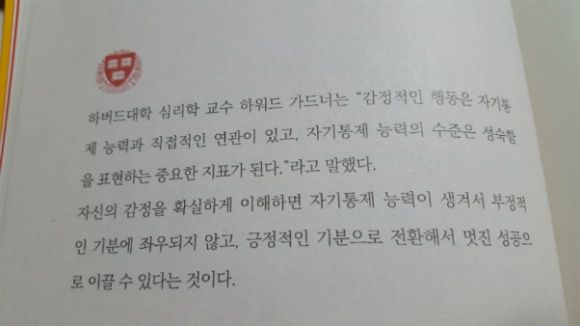 하버드대학 심리학 교수 하워드 가드너는 “감정적인 행동은 자기통
제 능력과 직접적인 연관이 있고, 자기통제 능력의 수준은 성숙함
을 표현하는 중요한 지표가 된다.”라고 말했다.
자신의 감정을 확실하게 이해하면 자기통제 능력이 생겨서 부정적
인 기분에 좌우되지 않고, 긍정적인 기분으로 전환해서 멋진 성공으
로 이끌 수 있다는 것이다.